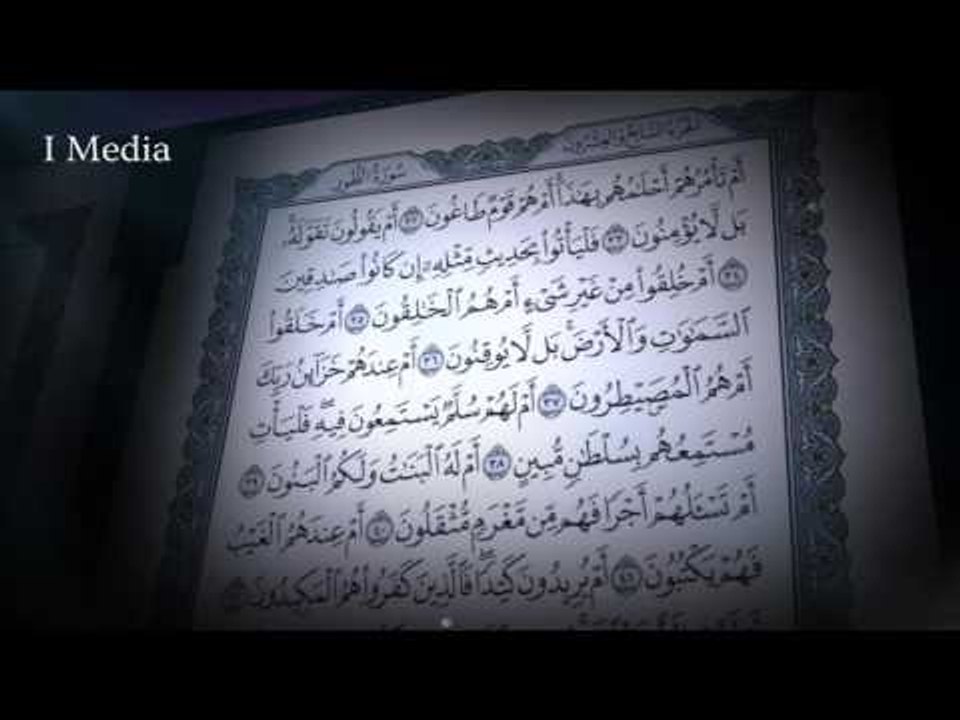 I Media
سُورَةُ الطُّورِ
الجُزءُ السَّابِعُ وَالعِشْرُونَ
أَمْ تَأْمُرُهُمْ أَحْلَٰمُهُم بِهَٰذَآ ۚ أَمْ هُمْ قَوْمٌ طَاغُونَ ٣٢ أَمْ يَقُولُونَ تَقَوَّلَهُۥ ۚ
بَل لَّا يُؤْمِنُونَ ٣٣ فَلْيَأْتُوا۟ بِحَدِيثٍ مِّثْلِهِۦٓ إِن كَانُوا۟ صَٰدِقِينَ
٣٤ أَمْ خُلِقُوا۟ مِنْ غَيْرِ شَىْءٍ أَمْ هُمُ ٱلْخَٰلِقُونَ ٣٥ أَمْ خَلَقُوا۟
ٱلسَّمَٰوَٰتِ وَٱلْأَرْضَ ۚ بَل لَّا يُوقِنُونَ ٣٦ أَمْ عِندَهُمْ خَزَآئِنُ رَبِّكَ
أَمْ هُمُ ٱلْمُصَۣيْطِرُونَ ٣٧ أَمْ لَهُمْ سُلَّمٌ يَسْتَمِعُونَ فِيهِ ۖ فَلْيَأْتِ
مُسْتَمِعُهُم بِسُلْطَٰنٍ مُّبِينٍ ٣٨ أَمْ لَهُ ٱلْبَنَٰتُ وَلَكُمُ ٱلْبَنُونَ ٣٩
أَمْ تَسْـَٔلُهُمْ أَجْرًا فَهُم مِّن مَّغْرَمٍ مُّثْقَلُونَ ٤٠ أَمْ عِندَهُمُ ٱلْغَيْبُ
فَهُمْ يَكْتُبُونَ ٤١ أَمْ يُرِيدُونَ كَيْدًا ۖ فَٱلَّذِينَ كَفَرُوا۟ هُمُ ٱلْمَكِيدُونَ